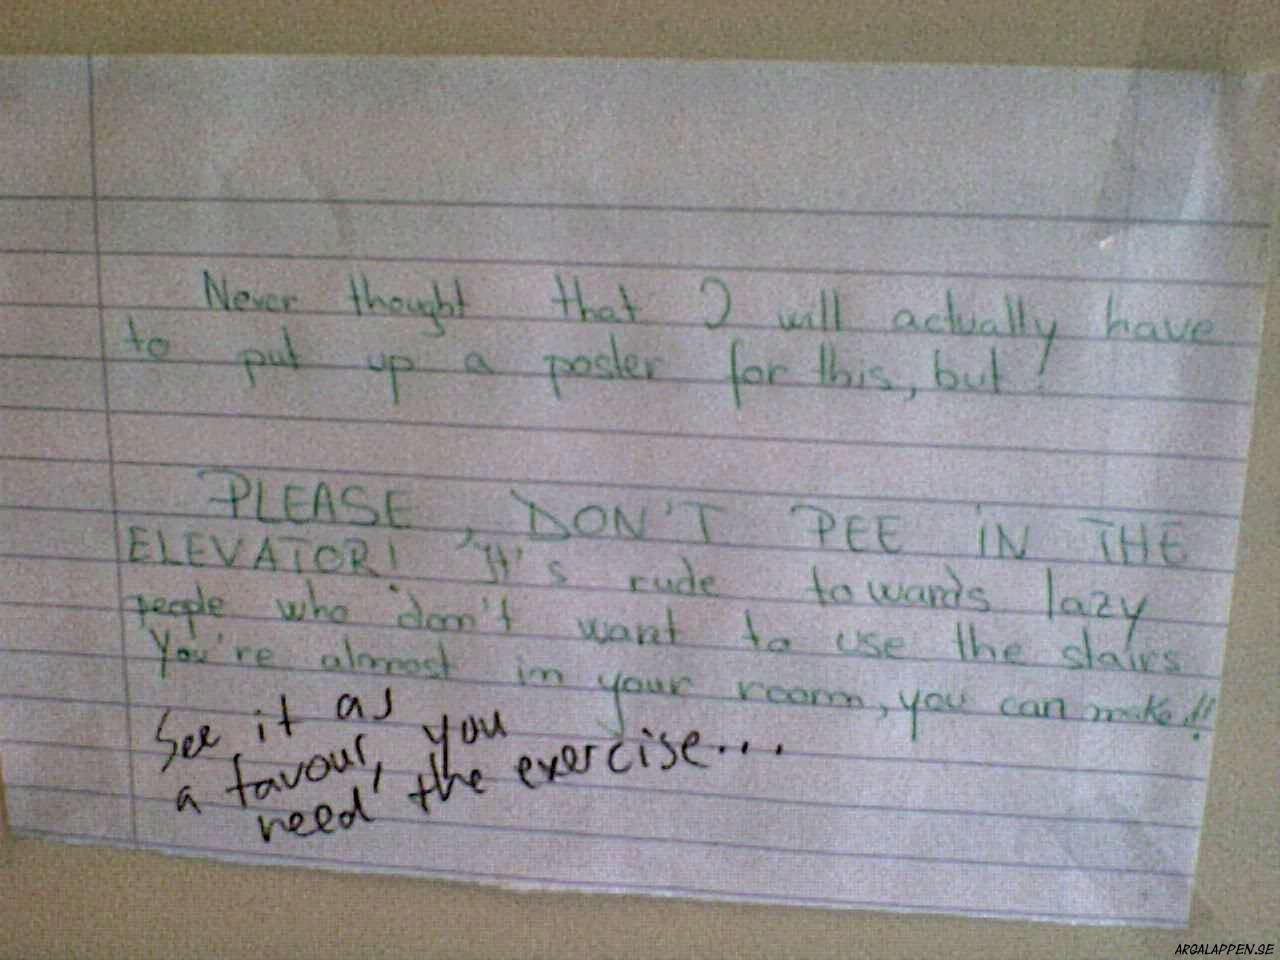 Never thought that I will actually have
to put up a poster for this, but!
PLEASE, DON'T PEE IN THE
ELEVATOR! It's rude towards lazy
people who don't want to use the stairs
You're almost in your room, you can make!!
See it as
a favour, you
need the exercise...
ARGALAPPEN.SE